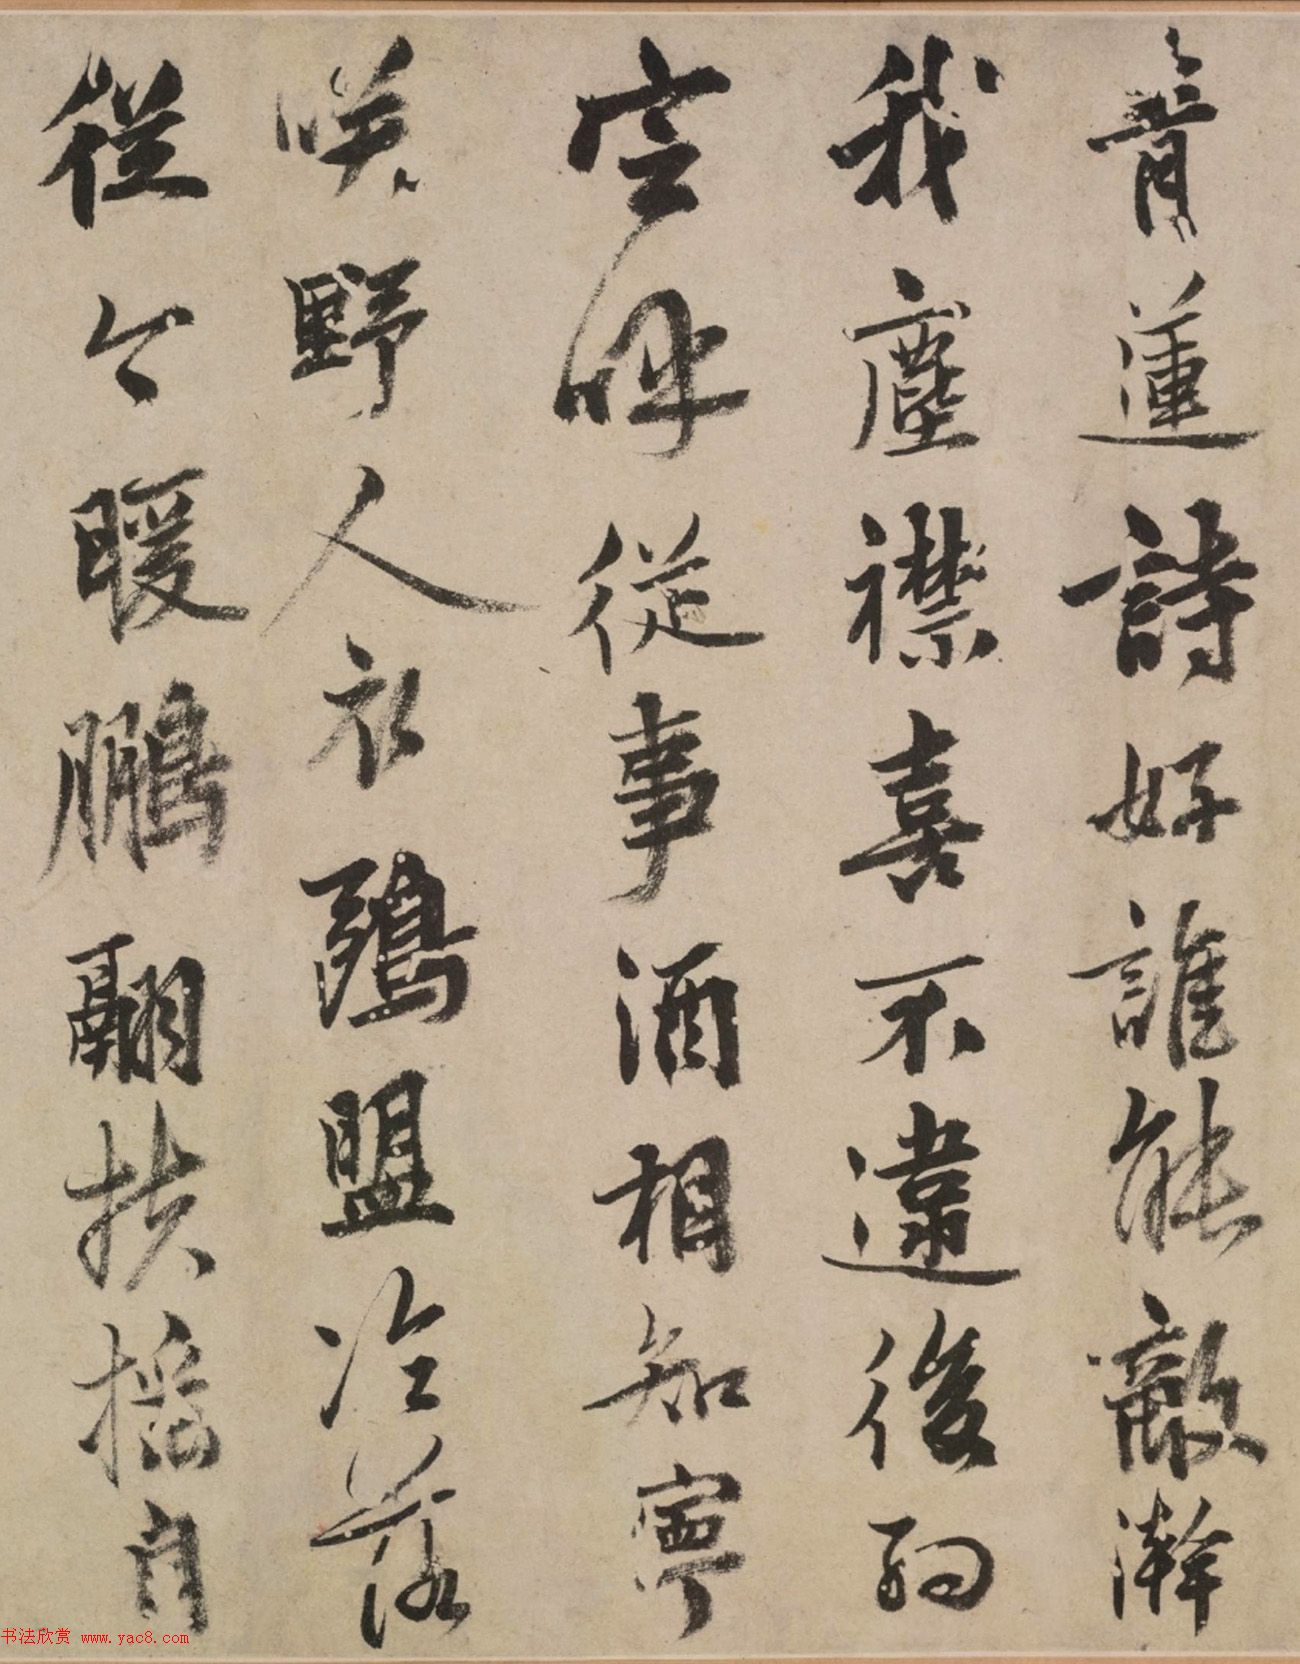 青蓮詩好誰能敵瀚
我塵襟喜不違後約
空時從事酒相知寧
咲野人衣鷗盟冷落
從今暖鵬翮扶搖自
书法欣赏 www.yac8.com